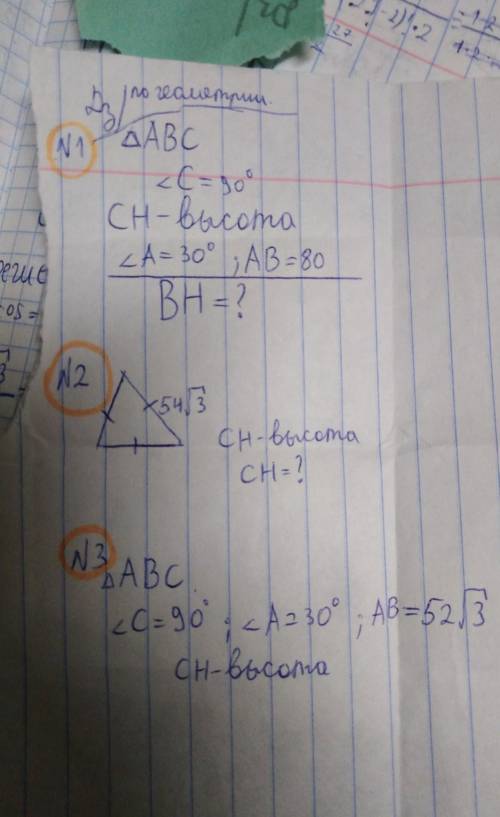 Дз по геометрии.
N1
△ABC
∠C=90°
CH-высота
∠A=30° ; AB=80
BH=?
N2
54√3
CH-высота
CH=?
N3
△ABC
∠C=90° ; ∠A=30° ; AB=52√3
CH-высота